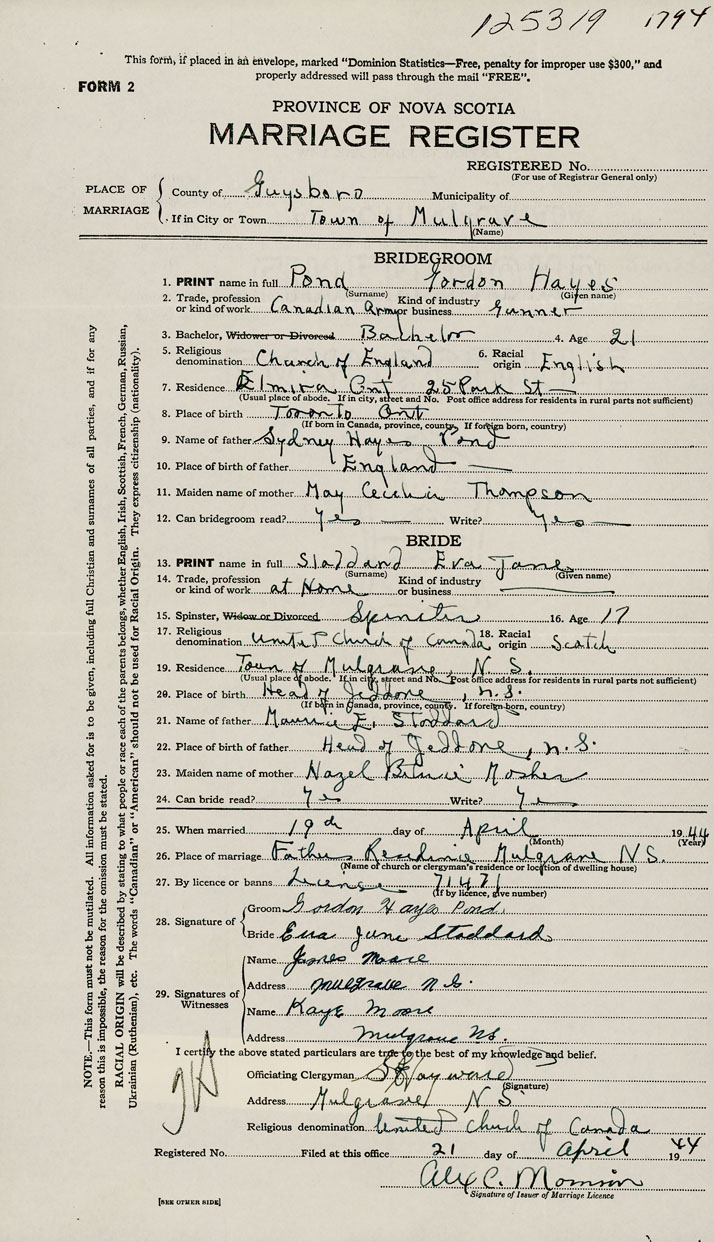 125319 1794
This form, if placed in an envelope, marked "Dominion Statistics—Free, penalty for improper use $300," and
properly addressed will pass through the mail "FREE".
FORM 2
PROVINCE OF NOVA SCOTIA
MARRIAGE REGISTER
REGISTERED No.
(For use of Registrar General only)
PLACE OF MARRIAGE
County of Guysboro Municipality of
If in City or Town Town of Mulgrave
(Name)
BRIDEGROOM
1. PRINT name in full Pond Gordon Hayes
(Surname) (Given name)
2. Trade, profession or kind of work Canadian Army Kind of industry or business Gunner
3. Bachelor, Widower or Divorced Bachelor 4. Age 21
5. Religious denomination Church of England 6. Racial origin English
7. Residence Elmira Ont 25 Park St
(Usual place of abode. If in city, street and No. Post office address for residents in rural parts not sufficient)
8. Place of birth Toronto Ont
(If born in Canada, province, county. If foreign born, country)
9. Name of father Sydney Hayes Pond
10. Place of birth of father England
11. Maiden name of mother May Cecelia Thompson
12. Can bridegroom read? Yes Write? Yes
BRIDE
13. PRINT name in full Stoddard Eva June
(Surname) (Given name)
14. Trade, profession or kind of work at Home Kind of industry or business
15. Spinster, Widow or Divorced Spinster 16. Age 17
17. Religious denomination United Church of Canada 18. Racial origin Scotch
19. Residence Town of Mulgrave, N.S.
(Usual place of abode. If in city, street and No. Post office address for residents in rural parts not sufficient)
20. Place of birth Head of Jeddore, N.S.
(If born in Canada, province, county. If foreign born, country)
21. Name of father Maurice E. Stoddard
22. Place of birth of father Head of Jeddore, N.S.
23. Maiden name of mother Hazel Mosher
24. Can bride read? Yes Write? Yes
25. When married 19th day of April 1944
(Month) (Year)
26. Place of marriage Fathers Residence Mulgrave N.S.
(Name of church or clergyman's residence or location of dwelling house)
27. By licence or banns License 71471
(If by licence, give number)
28. Signature of
Groom Gordon Hayes Pond
Bride Eva June Stoddard
29. Signatures of Witnesses
Name James Moore
Address Mulgrave N.S.
Name Kaye Moore
Address Mulgrave N.S.
I certify the above stated particulars are true to the best of my knowledge and belief.
Officiating Clergyman Hayward
(Signature)
Address Mulgrave N.S.
Religious denomination United Church of Canada
Registered No. Filed at this office 21 day of April 1944
Alex C.
Signature of Issuer of Marriage Licence
[SEE OTHER SIDE]
NOTE.—This form must not be mutilated. All information asked for is to be given, including full Christian and surnames of all parties, and if for any
reason this is impossible, the reason for the omission must be stated.
RACIAL ORIGIN will be described by stating to what people or race each of the parents belongs, whether English, Irish, Scottish, French, German, Russian,
Ukrainian (Ruthenian), etc. The words "Canadian" or "American" should not be used for Racial Origin. They express citizenship (nationality).